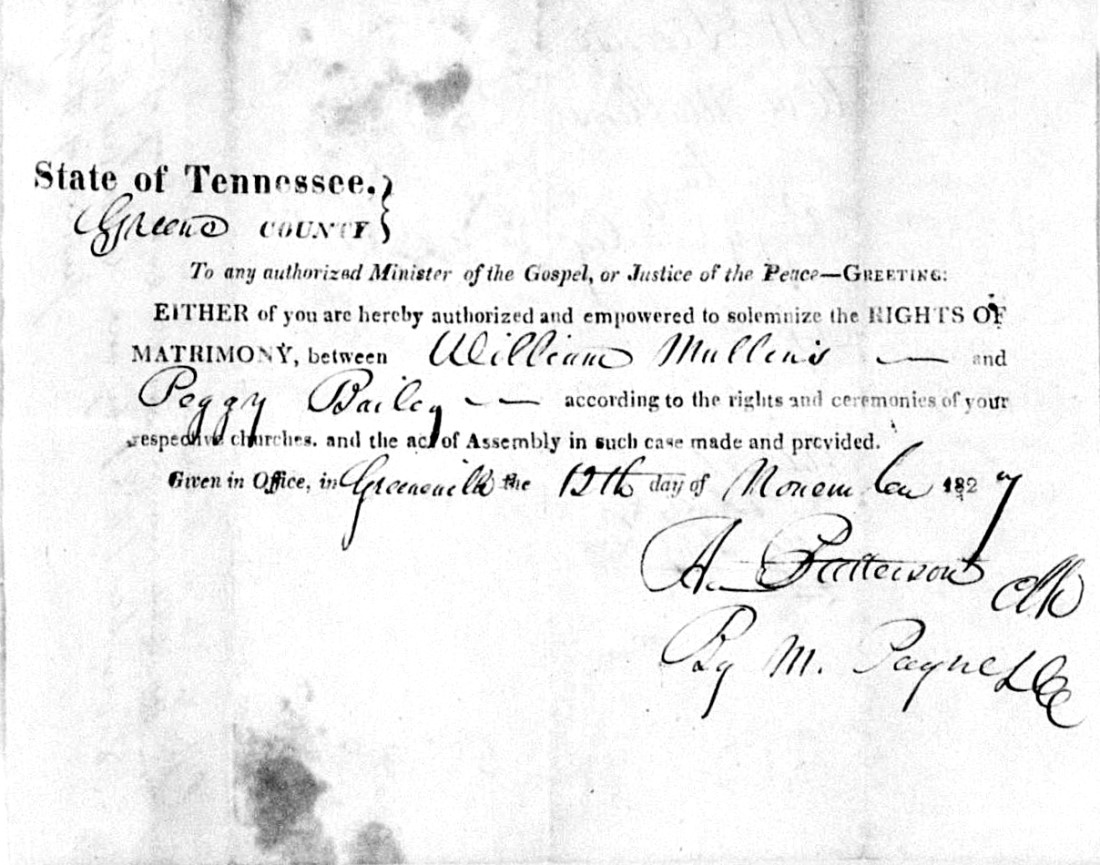 State of Tennessee.}
Greene COUNTY}
To any authorized Minister of the Gospel, or Justice of the Peace—GREETING:
EITHER of you are hereby authorized and empowered to solemnize the RIGHTS OF
MATRIMONY, between William Mullenis — and
Peggy Bailey — — according to the rights and ceremonies of your
respective churches. and the act of Assembly in such case made and provided.
Given in Office, in Greeneville the 12th day of November 1827
A. Patterson Clk
By M. Payne